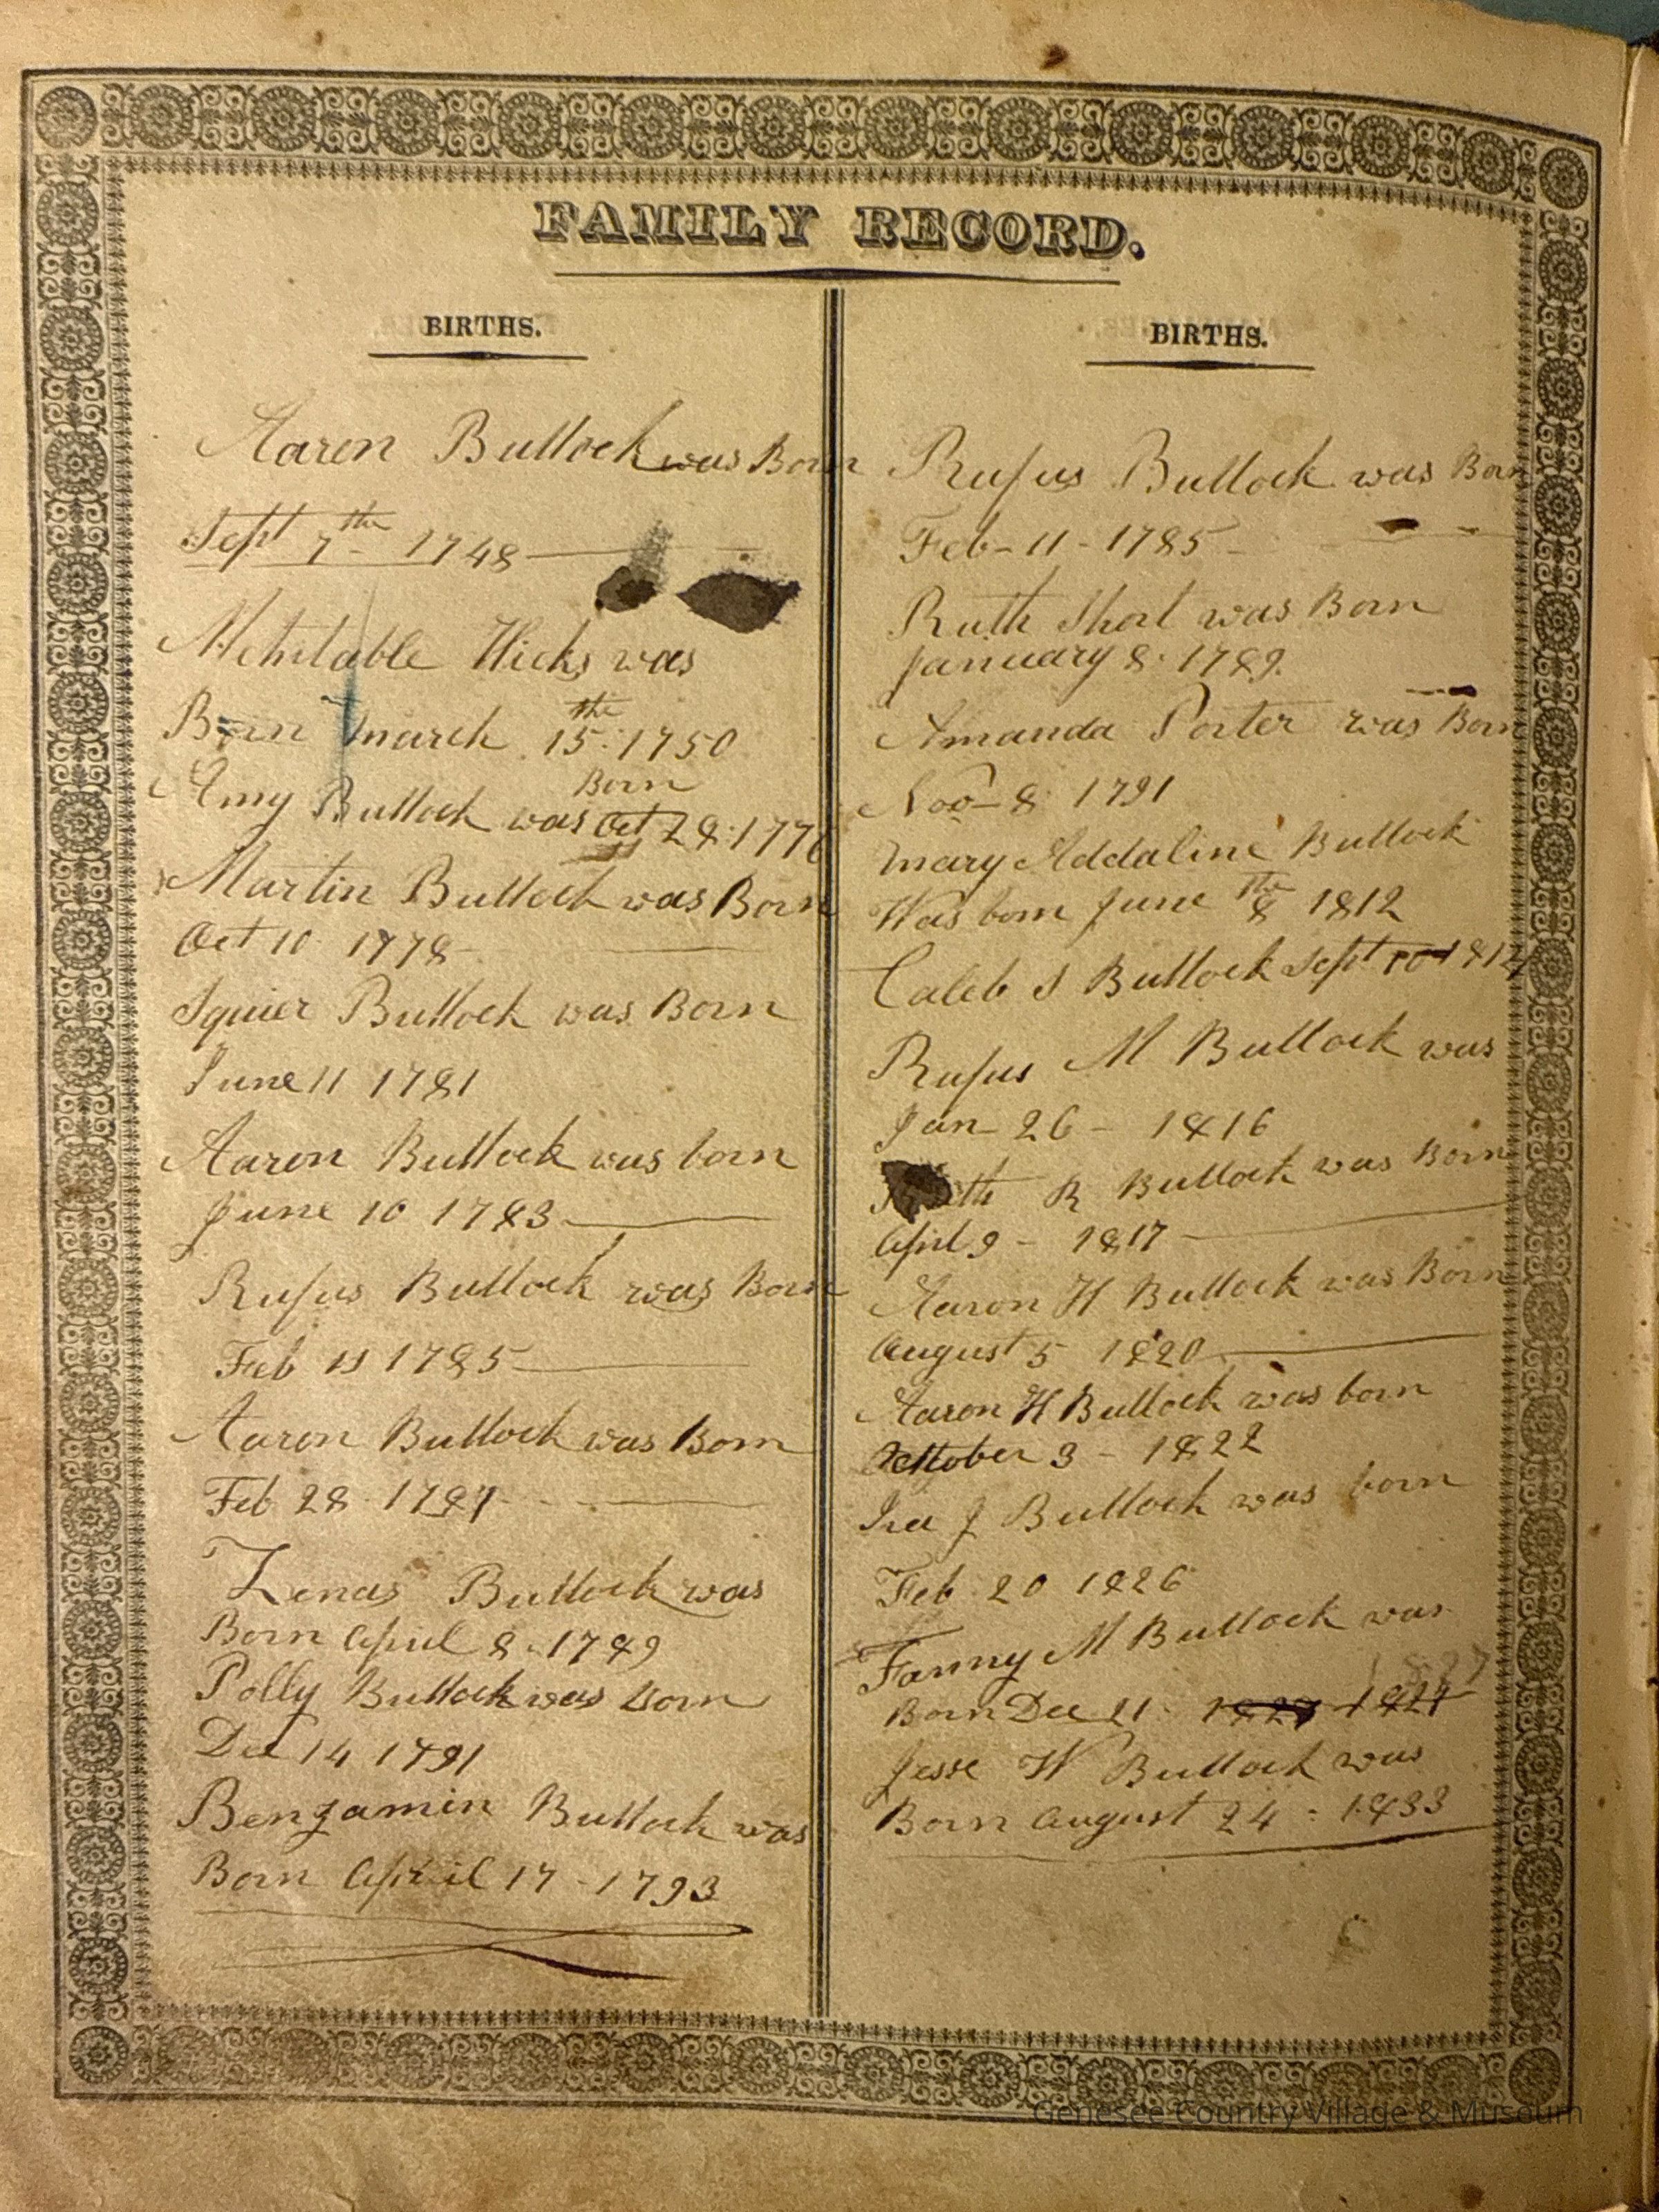 FAMILY RECORD.
BIRTHS.
Aaron Bullock was Born
Sept 7th 1748
Mehitable Hicks was
Born march 15the 1750
Born
Amy Bullock was Oct 28 1776
Martin Bullock was Born
Oct 10 1778
Squier Bullock was Born
June 11 1781
Aaron Bullock was born
June 10 1783
Rufus Bullock was Born
Feb 11 1785
Aaron Bullock was Born
Feb 28 1787
Zenas Bullock was
Born April 8 1789
Polly Bullock was Born
Dec 14 1791
Bengamin Bullock was
Born April 17 - 1793
BIRTHS.
Rufus Bullock was Born
Feb - 11 - 1785
Ruth Short was Born
January 8 1789
Amanda Porter was Born
Nov - 8 1791
Mary Addaline Bullock
Was born June 8the 1812
Caleb S Bullock Sept 10
Rufus M Bullock was
Jan - 26 - 1816
R Bullock was Born
April 9 - 1817
Aaron H Bullock was Born
August 5 1820
Aaron H Bullock was born
October 3 - 1822
Ira J Bullock was born
Feb 20 1826
Fanny M Bullock was
1827
Born Dec 11
Jesse W Bullock was
Born August 24 : 1833
Genesee Country Village & Museum